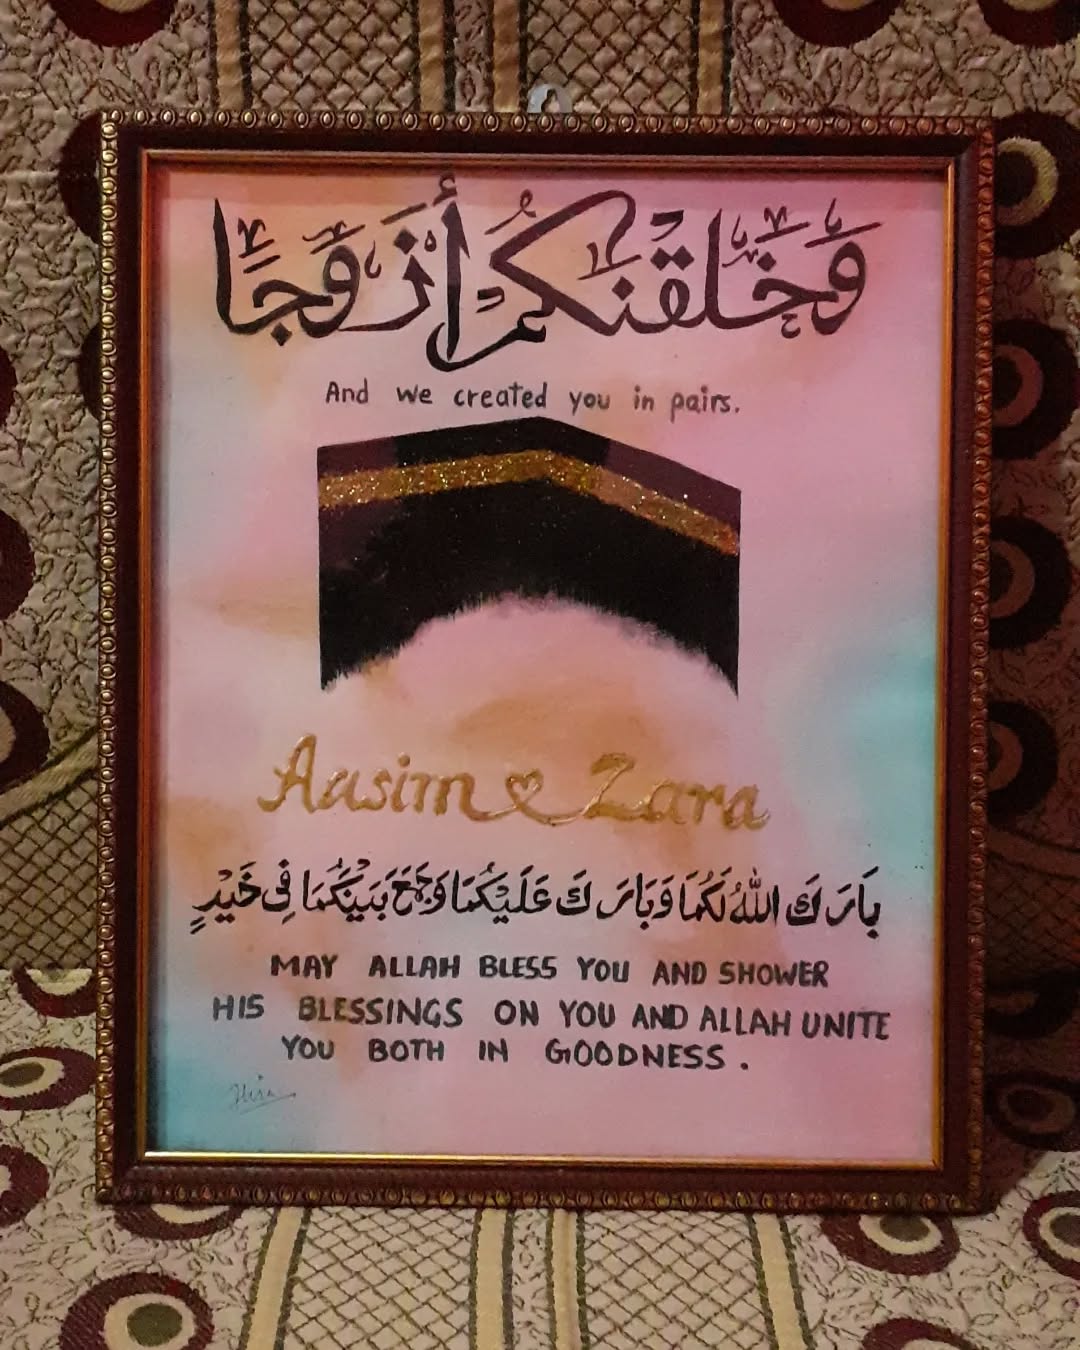 وَخَلَقْنَٰكُمْ أَزْوَٰجًا
And we created you in pairs.
Aasim Zara
بَارَكَ اللهُ لَكُمَا وَبَارَكَ عَلَيْكُمَا وَجَمَعَ بَيْنَكُمَا فِی خَيْرٍ
MAY ALLAH BLESS YOU AND SHOWER
HIS BLESSINGS ON YOU AND ALLAH UNITE
YOU BOTH IN GOODNESS.
Hira